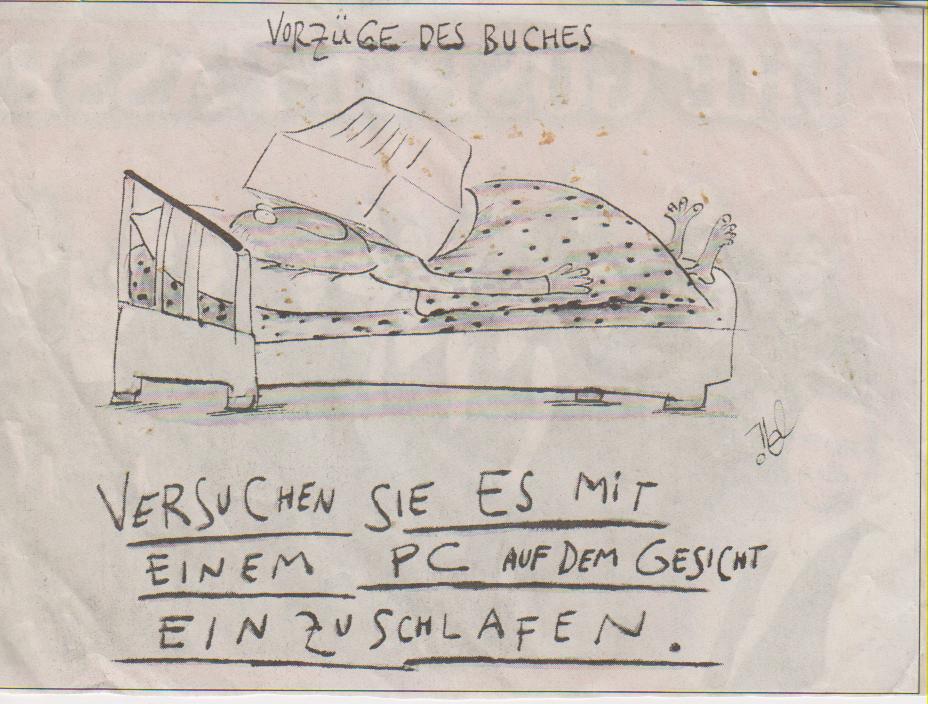 VORZÜGE DES BUCHES
VERSUCHEN SIE ES MIT
EINEM PC AUF DEM GESICHT
EINZUSCHLAFEN.